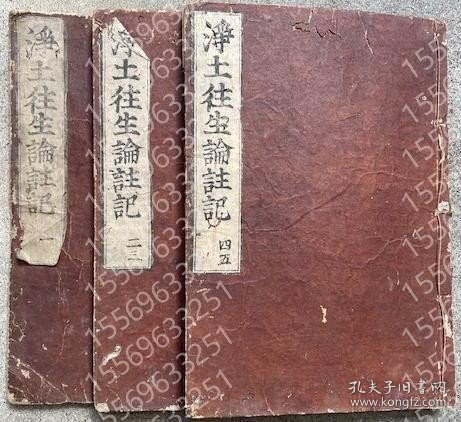 淨土往生論註記 一
淨土往生論註記 二三
淨土往生論註記 四五
15569633251
孔夫子旧书网
www.kongfz.com